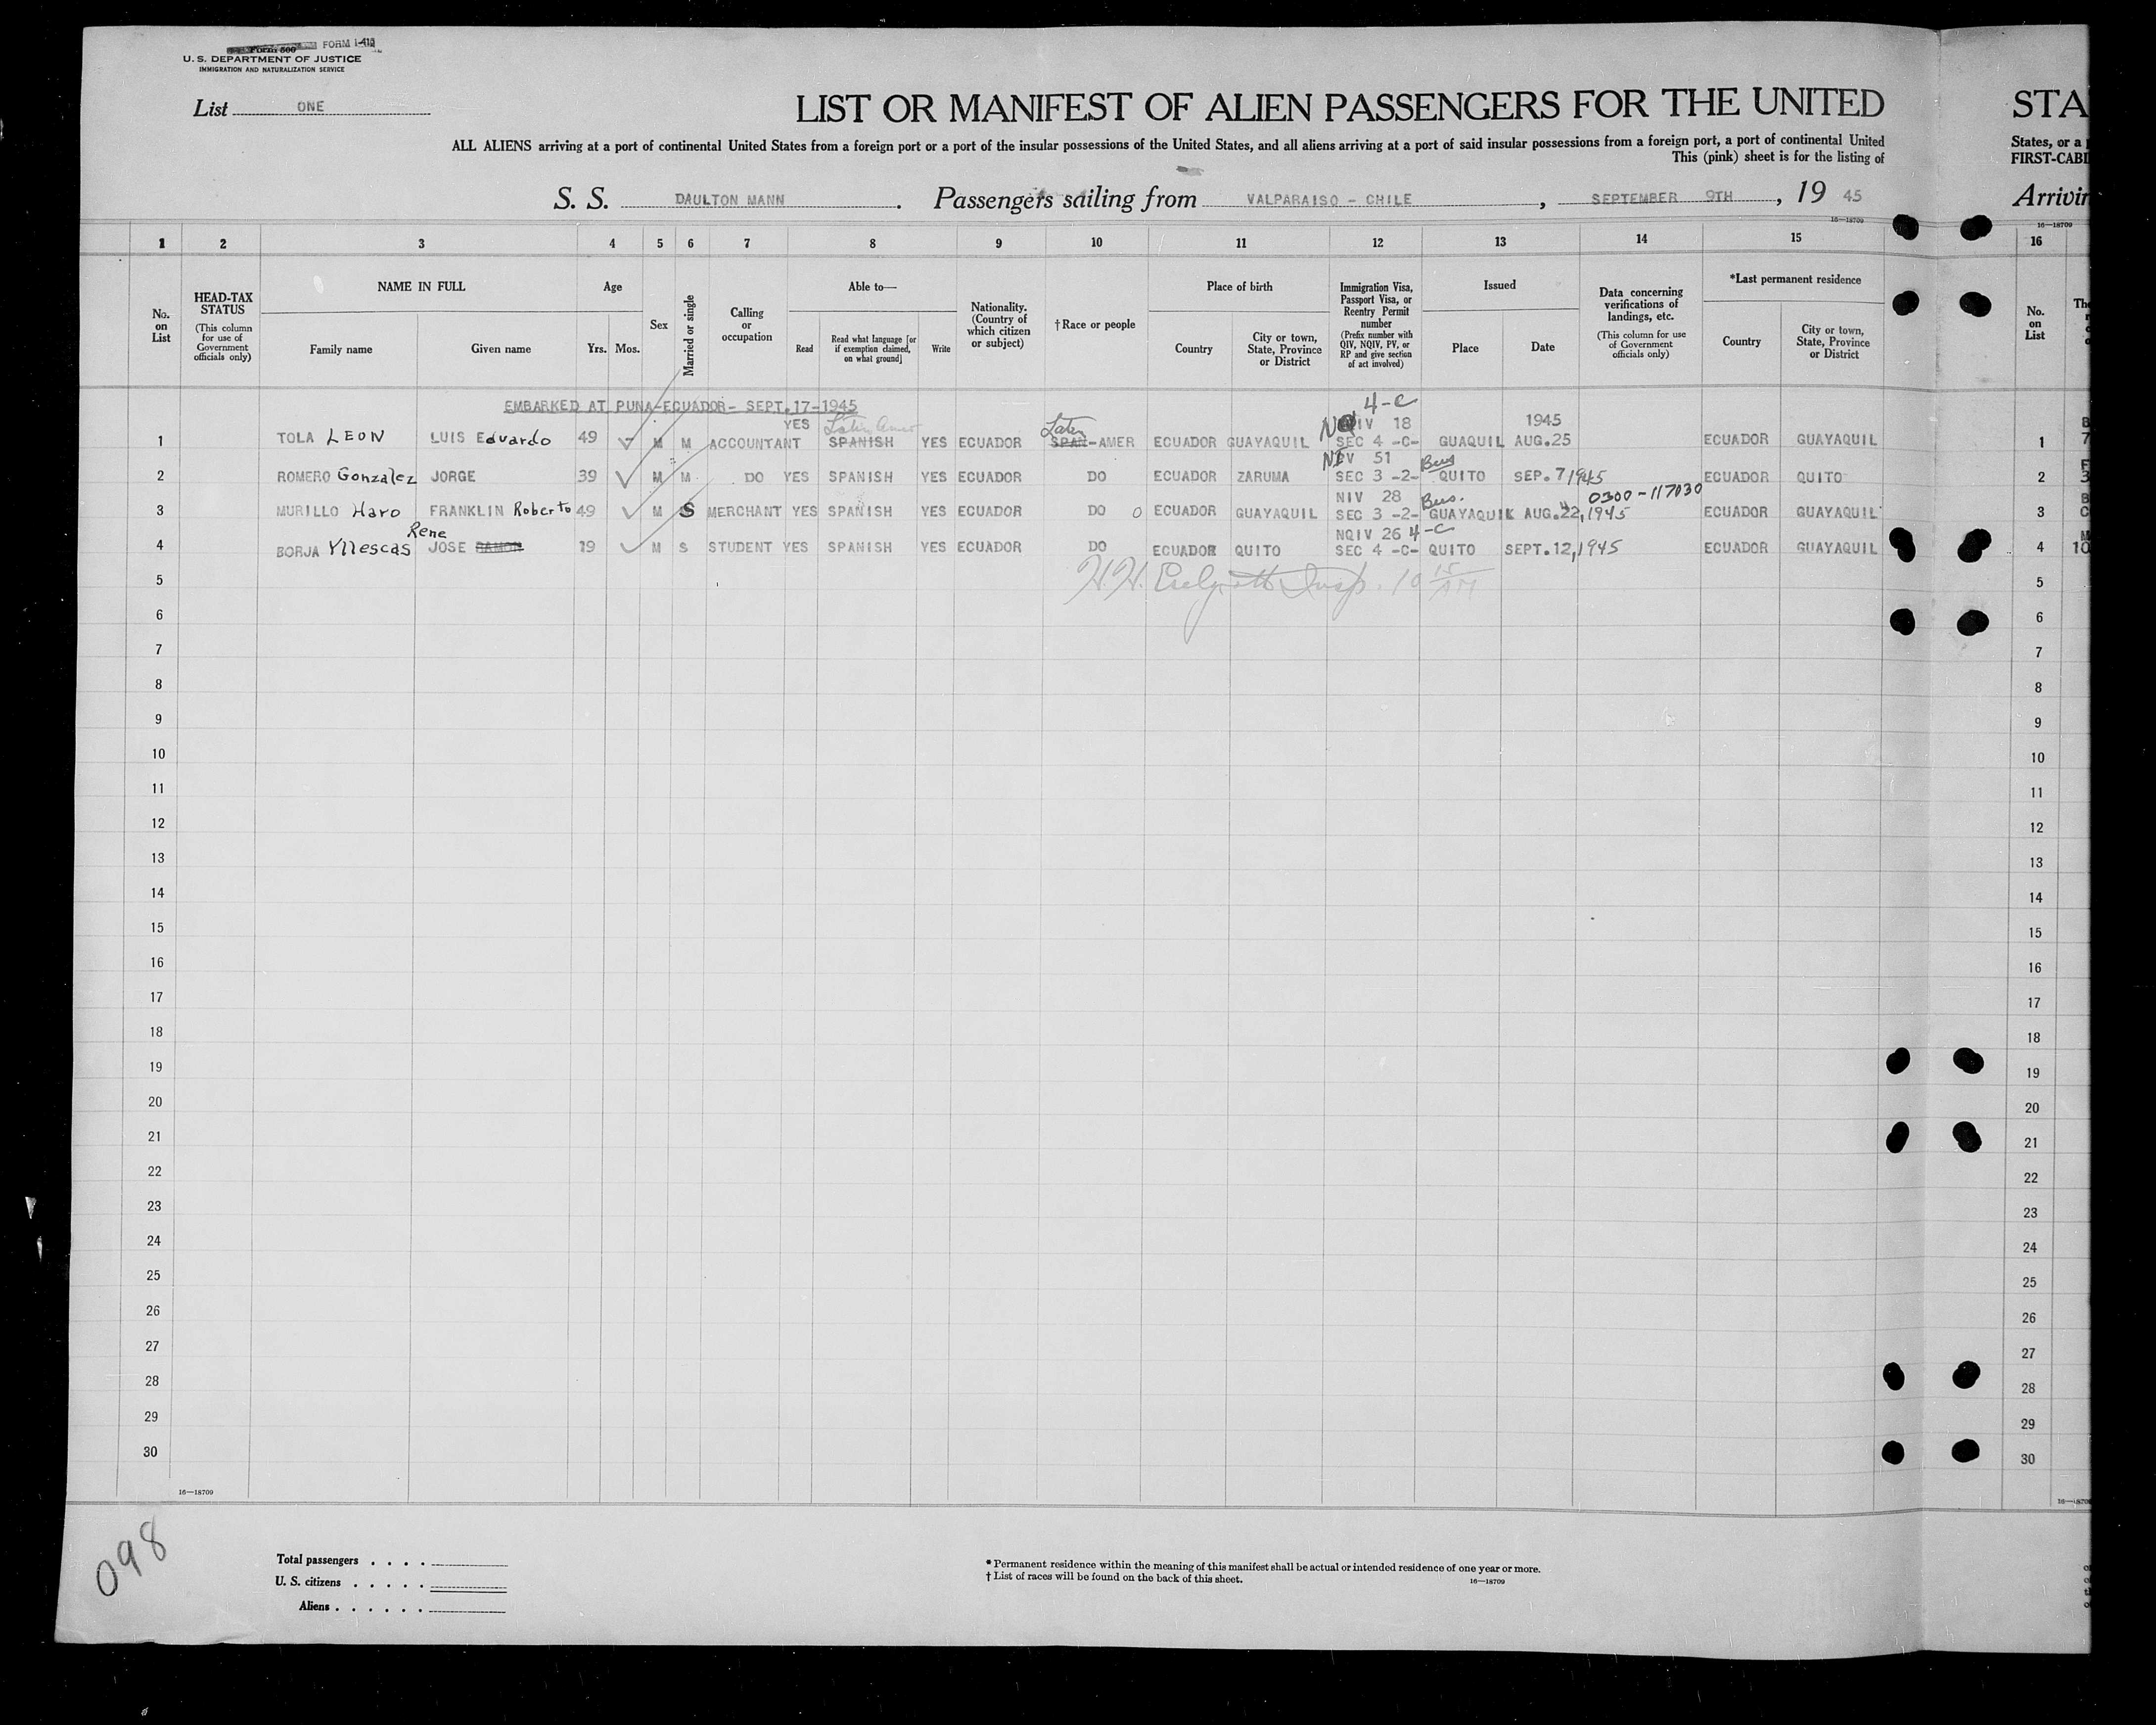 Form 500 FORM I-418
U. S. DEPARTMENT OF JUSTICE
IMMIGRATION AND NATURALIZATION SERVICE
List ONE
LIST OR MANIFEST OF ALIEN PASSENGERS FOR THE UNITED STA
ALL ALIENS arriving at a port of continental United States from a foreign port or a port of the insular possessions of the United States, and all aliens arriving at a port of said insular possessions from a foreign port, a port of continental United States, or a
This (pink) sheet is for the listing of FIRST-CABI
S. S. DAULTON MANN. Passengers sailing from VALPARAISO - CHILE, SEPTEMBER 9TH, 19 45 Arrivin
16—18709 16—18709
1 2 3 4 5 6 7 8 9 10 11 12 13 14 15 16
No. on List
HEAD-TAX STATUS
(This column for use of Government officials only)
NAME IN FULL
Family name
Given name
Age
Yrs. Mos.
Sex
Married or single
Calling or occupation
Able to—
Read
Read what language [or if exemption claimed, on what ground]
Write
Nationality. (Country of which citizen or subject)
†Race or people
Place of birth
Country
City or town, State, Province or District
Immigration Visa, Passport Visa, or Reentry Permit number
(Prefix number with QIV, NQIV, PV, or RP and give section of act involved)
Issued
Place
Date
Data concerning verifications of landings, etc.
(This column for use of Government officials only)
*Last permanent residence
Country
City or town, State, Province or District
No. on List
EMBARKED AT PUNA-ECUADOR- SEPT.17-1945
4-C
YES Latin Amer Latin NQIV 18 1945
1 TOLA LEON LUIS Eduardo 49 M M ACCOUNTANT SPANISH YES ECUADOR SPAN-AMER ECUADOR GUAYAQUIL SEC 4 -C- GUAQUIL AUG.25 ECUADOR GUAYAQUIL 1 7
51 Bus
2 ROMERO Gonzalez JORGE 39 M M DO YES SPANISH YES ECUADOR DO ECUADOR ZARUMA SEC 3 -2- QUITO SEP. 7 1945 ECUADOR QUITO 2 3
NIV 28 Bus. 0300-117030
3 MURILLO Haro FRANKLIN Roberto 49 M S MERCHANT YES SPANISH YES ECUADOR DO O ECUADOR GUAYAQUIL SEC 3 -2- GUAYAQUIL AUG.22, 1945 ECUADOR GUAYAQUIL 3 C
Rene NQIV 26 4-C
4 BORJA Yllescas JOSE RAMON 19 M S STUDENT YES SPANISH YES ECUADOR DO ECUADOR QUITO SEC 4 -C- QUITO SEPT.12, 1945 ECUADOR GUAYAQUIL 4 10
H.H. Insp. 10 15 AM
5 5
6 6
7 7
8 8
9 9
10 10
11 11
12 12
13 13
14 14
15 15
16 16
17 17
18 18
19 19
20 20
21 21
22 22
23 23
24 24
25 25
26 26
27 27
28 28
29 29
30 30
16—18709
098
Total passengers . . . .
U. S. citizens . . . . .
Aliens . . . . . .
* Permanent residence within the meaning of this manifest shall be actual or intended residence of one year or more.
† List of races will be found on the back of this sheet. 16—18709